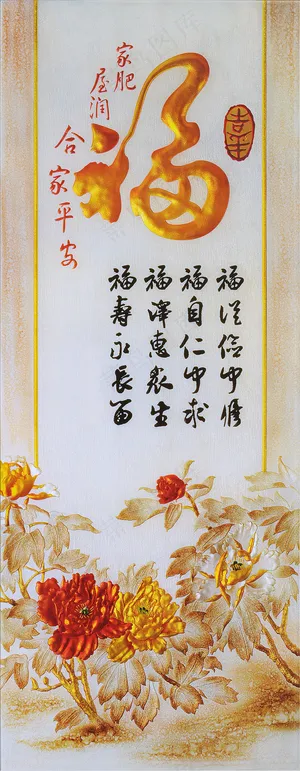 福
家肥
屋润
合家平安
福從儉中修
福自仁中求
福澤惠眾生
福壽永長留